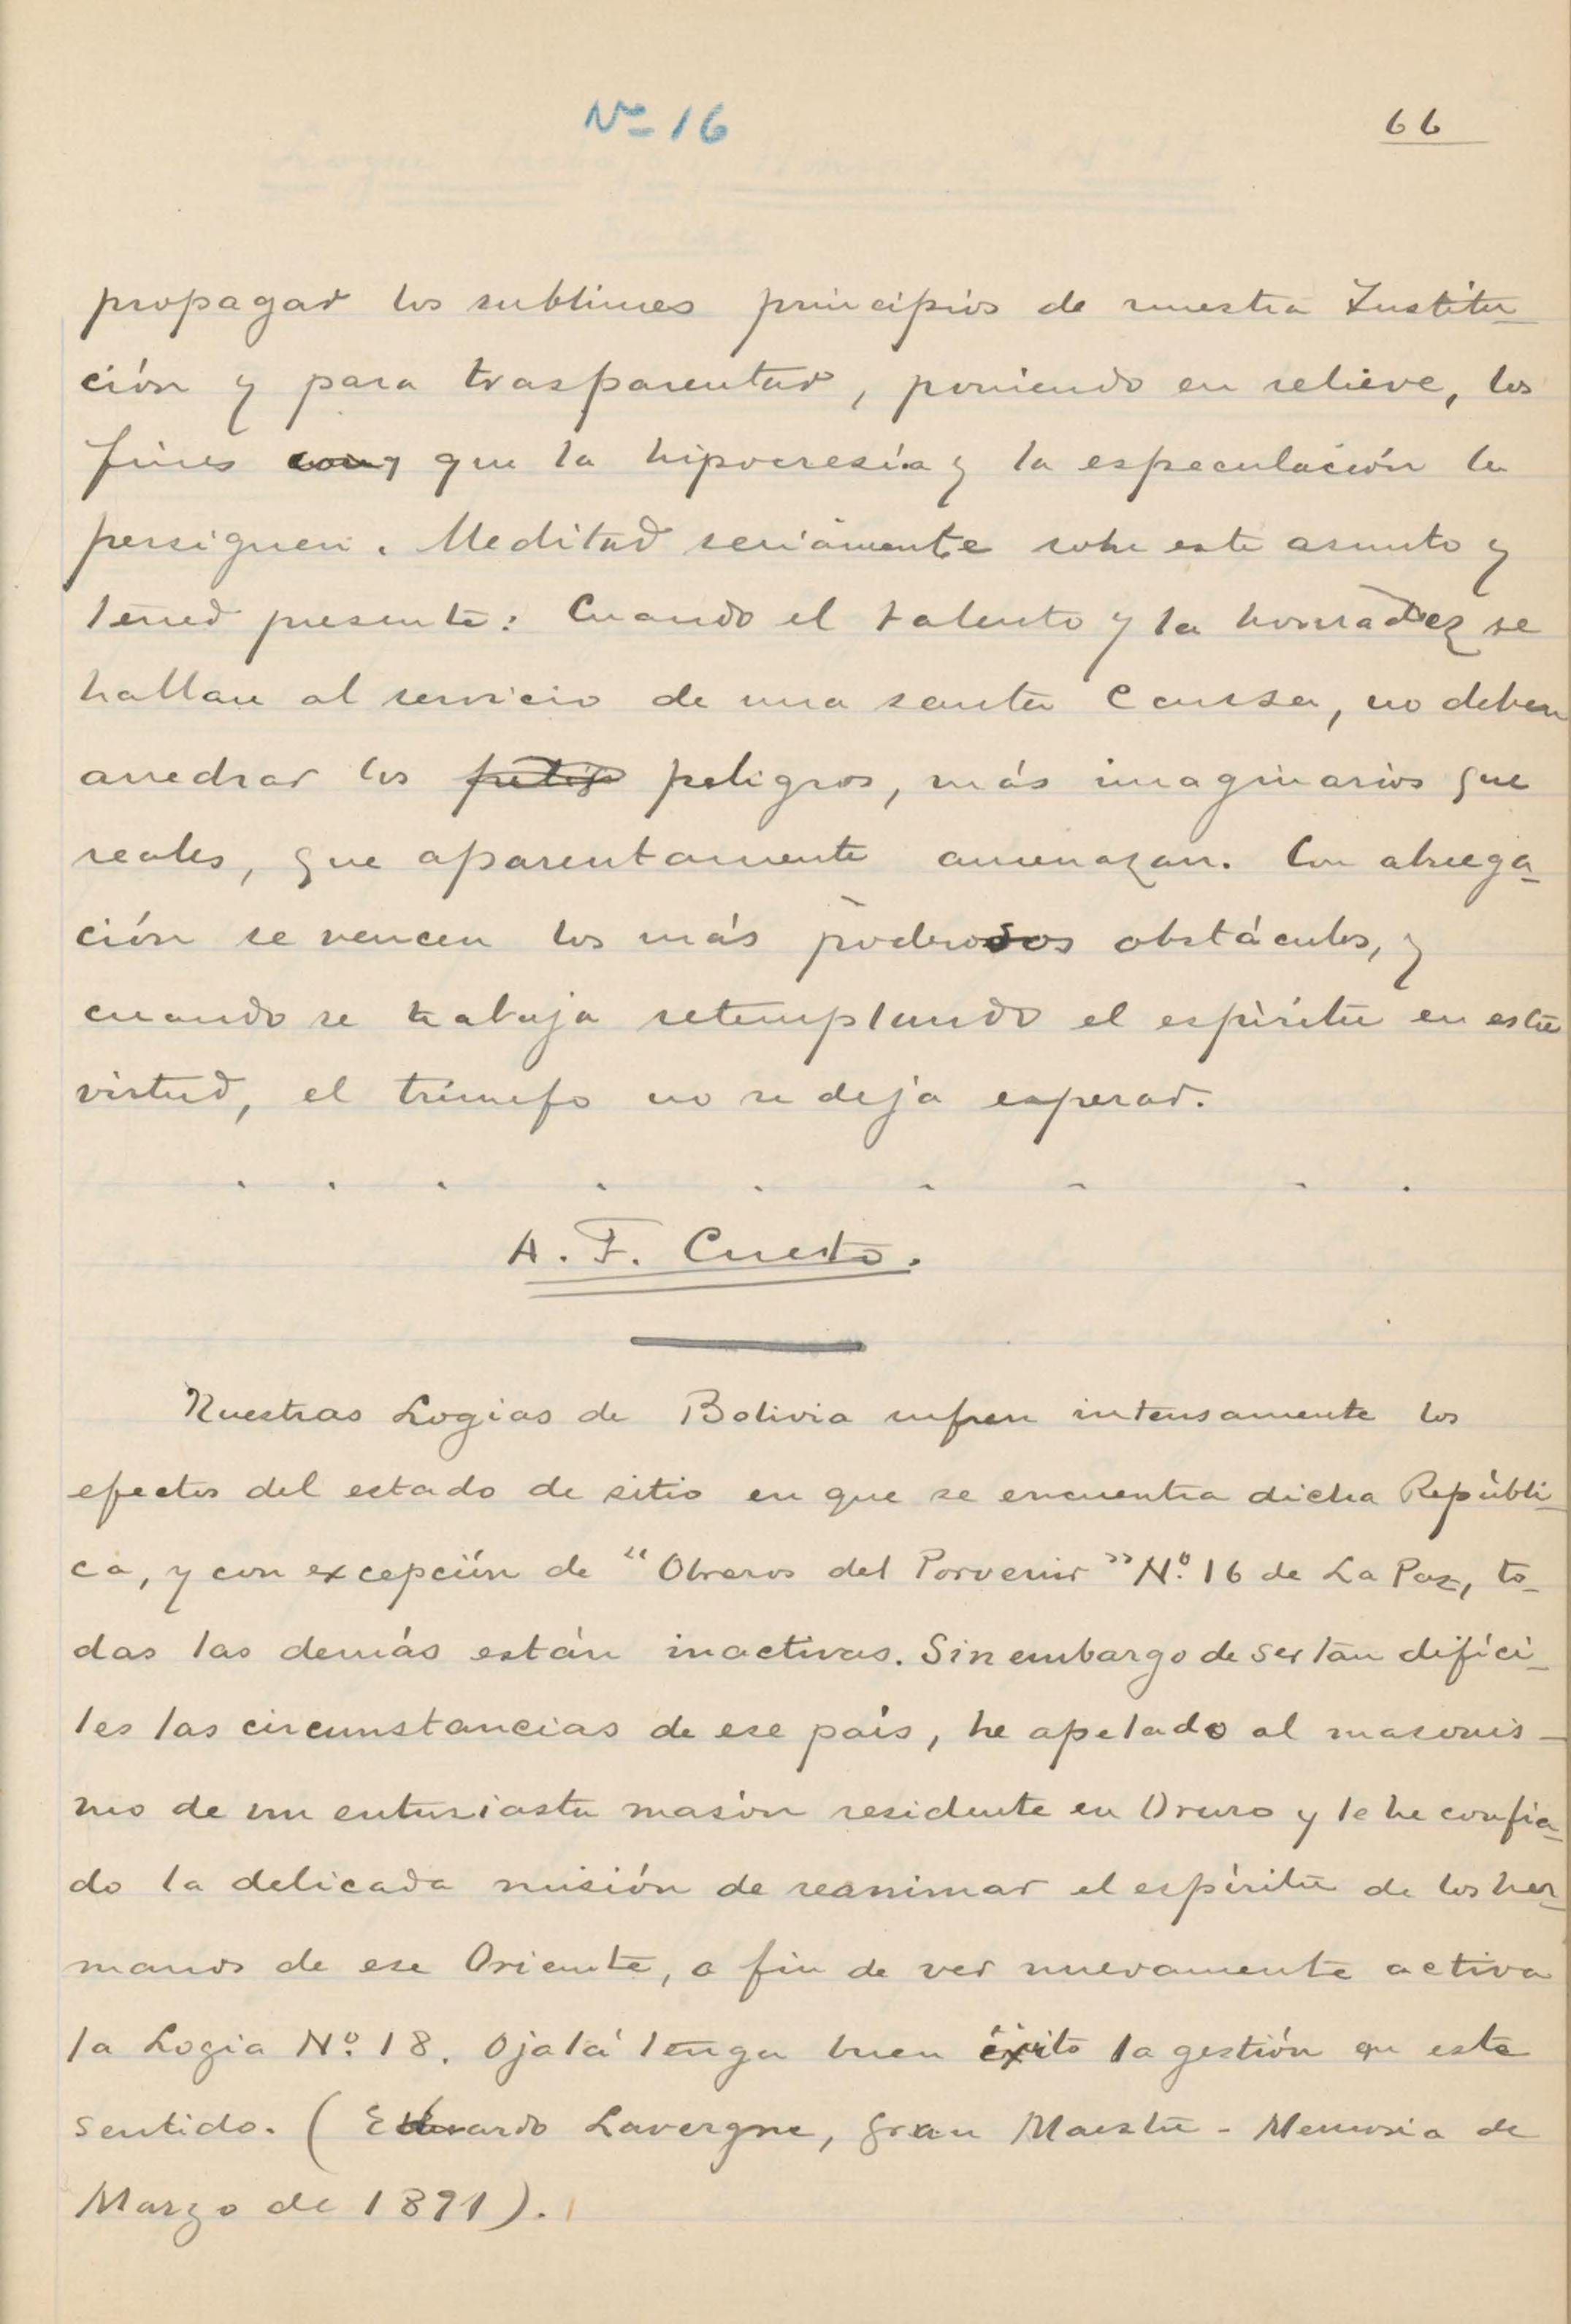 Nº 16
66
propagar los sublimes principios de nuestra Institu-
ción y para trasparentar, poniendo en relieve, los
fines con que la hipocresía y la especulación la
persiguen. Meditad seriamente sobre este asunto y
tened presente: Cuando el talento y la honradez se
hallan al servicio de una santa Causa, no deben
arredrar los peligros, más imaginarios que
reales, que aparentamente amenazan. Con abnega-
ción se vencen los más poderosos obstáculos, y
cuando se trabaja retemplando el espíritu en esta
virtud, el triunfo no se deja esperar.
. . . . . . . . .
A. F. Cueto.
Nuestras Logias de Bolivia sufren intensamente los
efectos del estado de sitio en que se encuentra dicha Repúbli-
ca, y con excepción de "Obreros del Porvenir" Nº. 16 de La Paz, to-
das las demás están inactivas. Sin embargo de ser tan difíci-
les las circunstancias de ese país, he apelado al masonis-
mo de un entusiasta masón residente en Oruro y le he confia-
do la delicada misión de reanimar el espíritu de los her-
manos de ese Oriente, a fin de ver nuevamente activa
la Logia Nº. 18. Ojalá tenga buen éxito la gestión en este
sentido. (Eduardo Lavergne, Gran Maestre - Memoria de
Marzo de 1891).